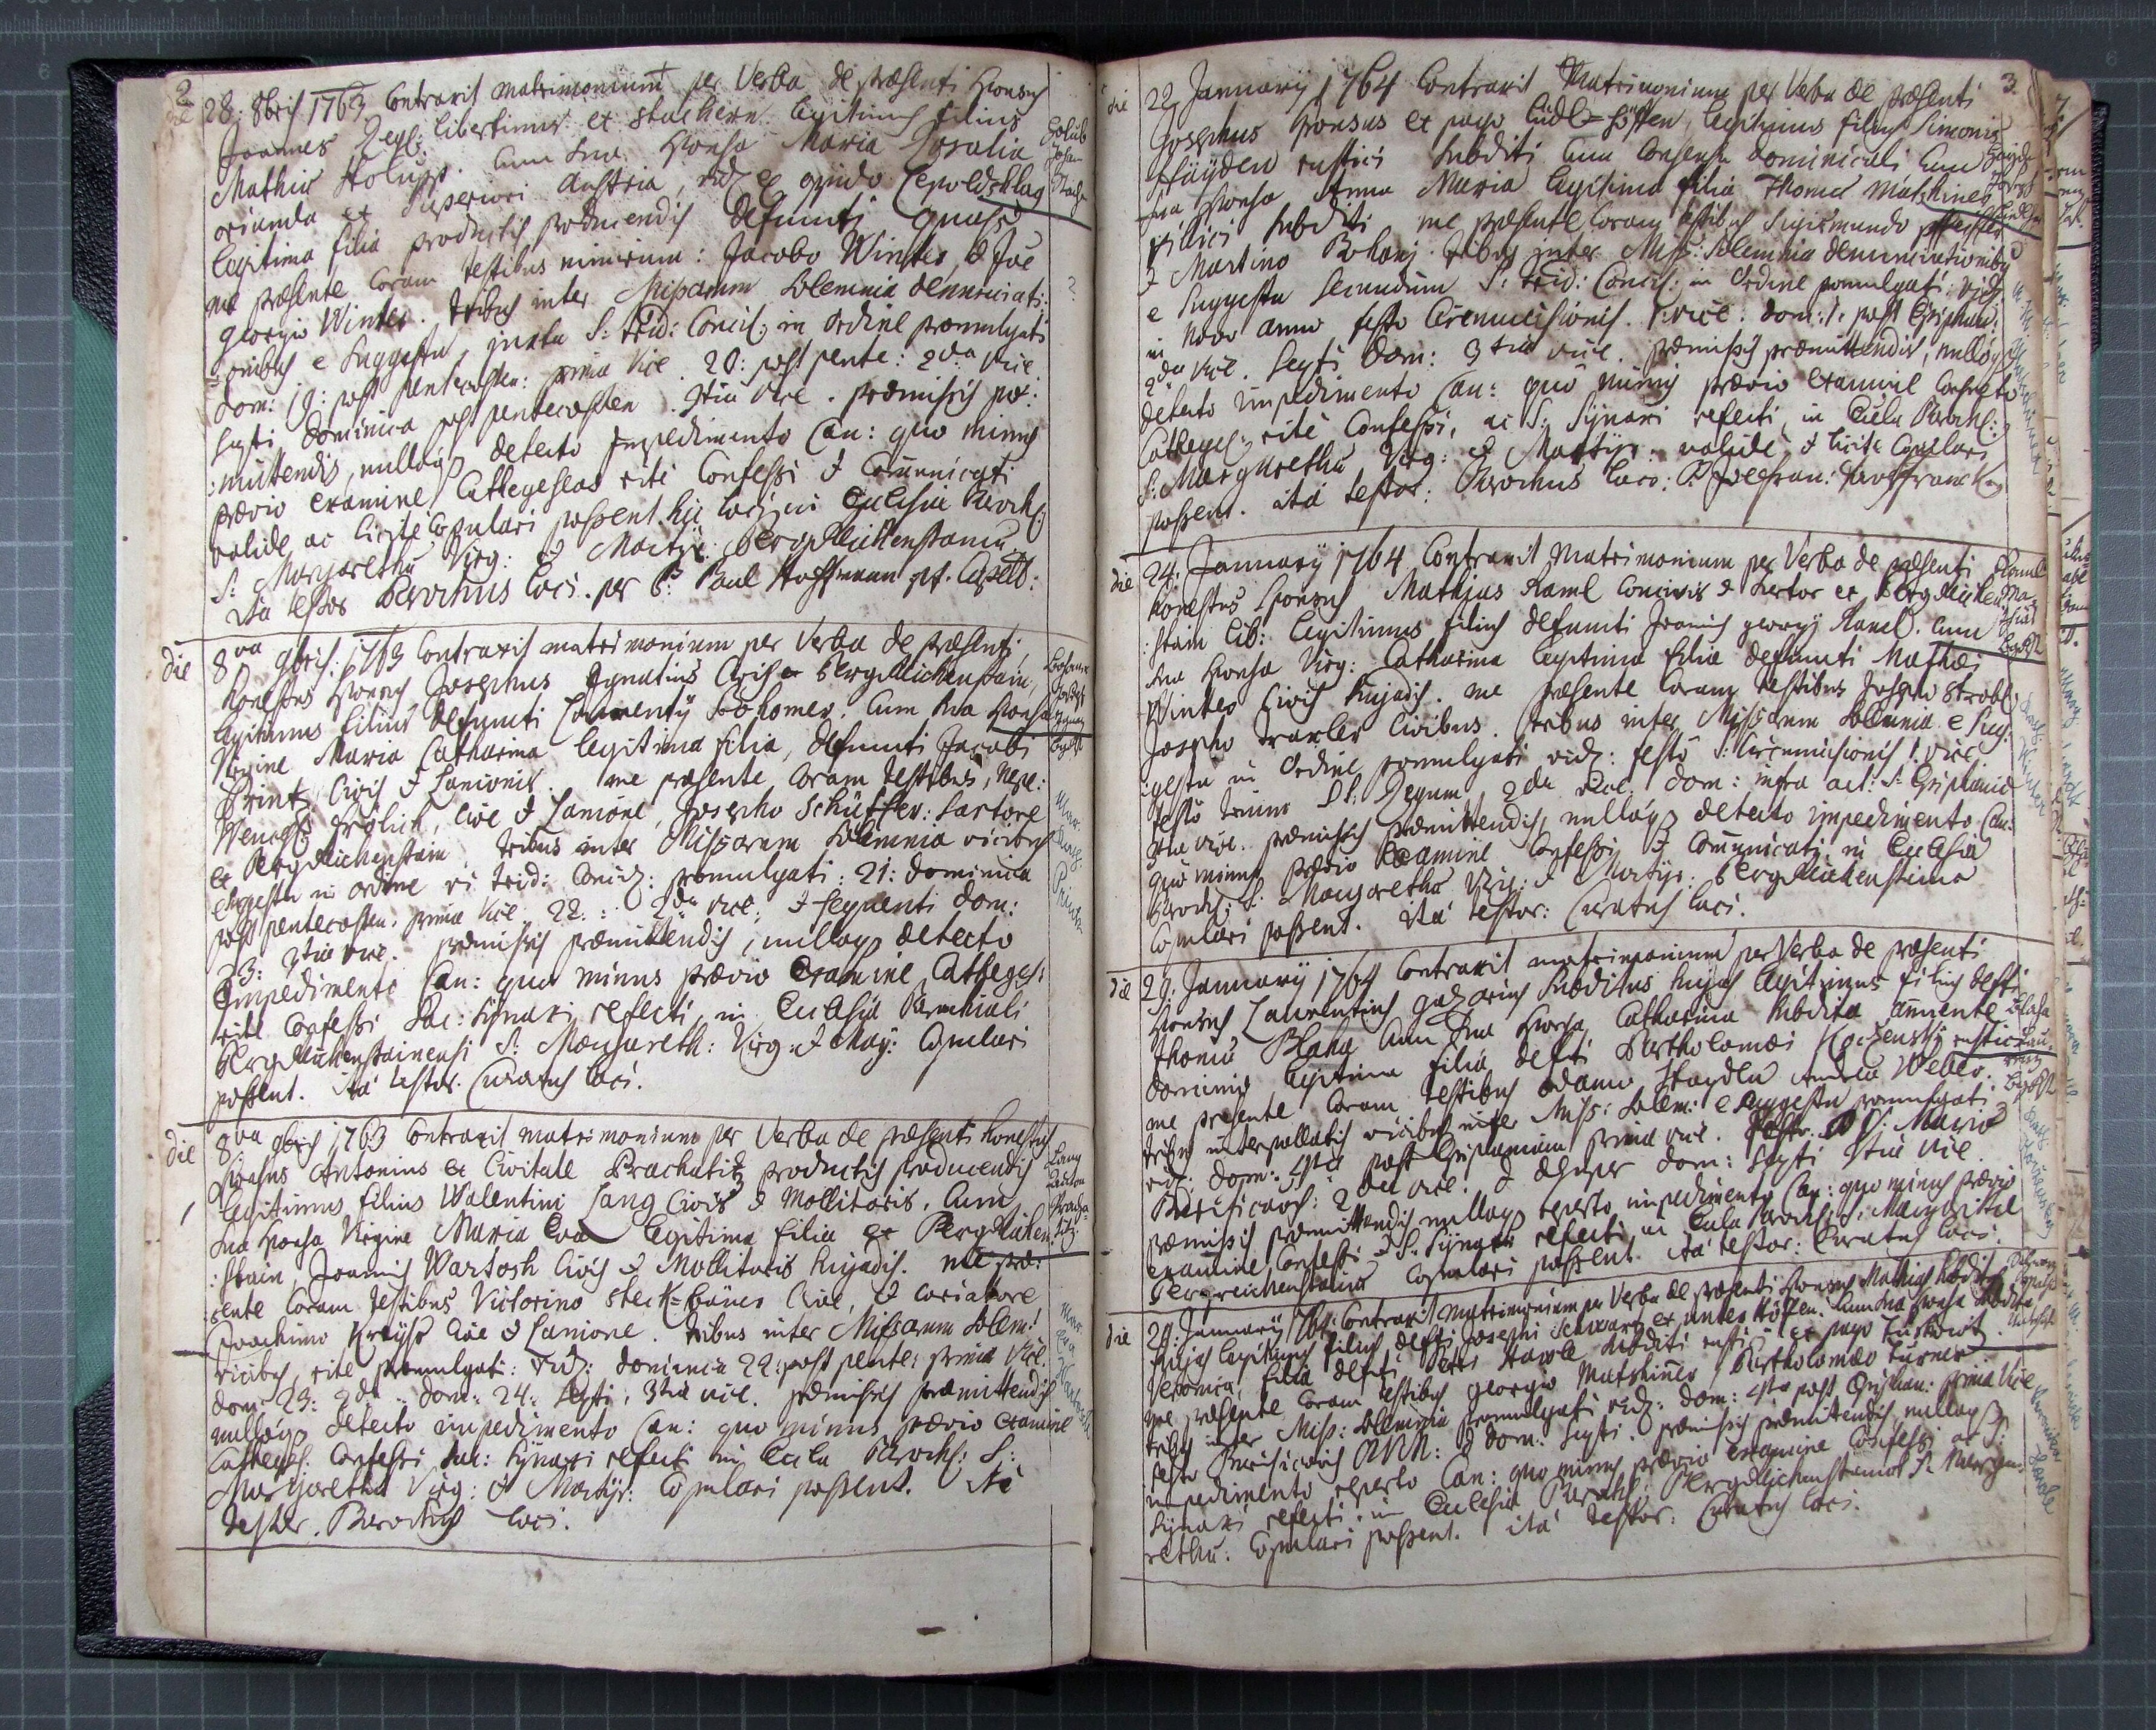 2
28: 8bris 1763 Contraxit matrimonium per Verba de præsenti sponsus
Joannes Regl: libertinus ex stachern legitimus filius
Mathiæ Holupp. Cum sua sponsa Maria Rosalia
orianda ex Superiori Austria, vidz ex opido Leopoldschlag
legitima filia productis producendis defuncti quasi
me præsente Coram testibus nimirum: Jacobo Winter, & Joe
georgio Winter. tribus inter Missarum Solemnia denunciati:
=onibus e Suggestu, juxta S: Trid: Concil: in Ordine promulgati
Dom: 19: post pentecosten: prima vice 20: post pente: 2da vice
Sequenti dominica post pentecosten 3tia vice. præmissis præ:
:mittendis, nulloq detecto Impedimento Can: quo minus
prævio examine Cathegeseos rite Confessi & Communicati
valide ac licite Copulari possent. hic loci in Ecclesia Paroch:
S: Margaretha Virg: & Martyr: Bergreichenstainii
Ita testor Parochus loci. per P: Paul Hoffmann pt. Capell:
Holub
Johan
Stach
?
die 8va 9bris: 1763 Contraxit matrimonium per Verba de præsenti,
honestus sponsus Josephus Ignatius Civis ex Bergreichenstain,
legitimus filius defuncti Clementy Bohomer. Cum sua sponsa
Virgine Maria Catharina legitima filia, defuncti Jacobi
Printz, Civis & Lanionis. me præsente Coram testibus,
Wencesl: Frölich, Cive & Lanione, Josepho Schüsster: Sartore
ex Bergreichenstain. tribus inter Missarum Solemnia vicibus
e suggestu in ordine vi trid: Concil: promulgati: 21: dominica
post pentecosten, prima vice. 22.: 2da vice; & sequenti dom:
23: 3tia vice. præmissis præmittendis, nulloq detecto
impedimento Can: quo minus prævio Examine Catheges:
rite Confessi Sac: Synaxi refecti, in Ecclesia Parochiali
Bergreichenstainensi S: Margareth: Virg: & May: Copulari
possent. ita testor. Curatus loci.
Joseph
Ignaz
Bgrst
Mar:
Printz
die 8va 9bris 1763 Contraxit matrimonium per Verba de præsenti honestus
sponsus Antonius ex Civitate Prachatitz productis producendis
legitimus filius Walentini Lang Civis & Mollitoris. Cum
sua sponsa Virgine Maria Eva legitima filia ex Bergreichen:
:stain, Joannis Wartosh Civis & Mollitoris hujadis. me præ:
:sente Coram testibus Victorino Cive, & coriatore
Joachimo Krayss Cive & Lanione. tribus inter Missarum Solem:
vicibus, rite promulgati: vidz: dominica 22: post pente: prima vice.
dom: 23: 2da .. dom: 24: Seqti, 3tia vice. præmissis præmittendis
nulloq detecto impedimento Can: quo minus prævio examine
Catheges. Confessi Sac: Synaxi refecti in Eccla Paroch: S:
Margaretha Virg: & Martyr: Copulari possent. Ita
testor. Parochus loci.
Lang
Anton
Pracha-
titz
Mar:
Eva
Wartosh
3.
die 22 January 1764 Contraxit Matrimonium per Verba de præsenti
Josephus sponsus ex pago Lidl-Höffen, legitimus filius Simonis
Häyden rustici Subditi Cum Consensu dominicali Cum
sua sponsa Anna Maria legitima filia Thomæ Matshiner
rustici Subditi me præsente Coram testibus Sigismundo
& Martino tribus inter Miss: Solemnia denunciationibus
e Suggestu Secundum S: trid: Concil: in Ordine promulgati: vidz:
in novo anno festo Circumcisionis. 1: vice: dom: 1. post Epiphan:
2da vice. Seqti Dom: 3tia vice. præmissis præmittendis, nulloq
detecto impedimento Can: quo minus prævio examine
Catheges: rite Confessi, ac S: Synaxi refecti, in Eccla Paroch:
S: Margaretha Virg: & Martyr: valide & licite Copulari
possent. ita testor: Parochus loci:
die 24: January 1764 Contraxit Matrimonium per Verba de præsenti
honestus sponsus Mathias Raml Concivis & Sartor ex Bergreichen
:stain lib: legitimus filius defuncti Joannis georgy Raml. Cum
sua sponsa Virg: Catharina legitima filia defuncti Mathæi
Winter Civis hujadis. me præsente Coram testibus Josepho Strobl
Josepho Traxler Civibus. tribus inter Missarum Solemnia e Sug:
:gestu in Ordine promulgati vidz: festo S: Circumcisionis 1. vice.
festo trium SS: Regum, 2da vice. Dom: infra oct: S: Epiphaniæ
3tia vice. præmissis præmittendis, nulloq detecto impedimento Can:
quo minus prævio Examine Confessi & Communicati in Ecclesia
Paroch: S: Margaretha Virg: & Martyr: Bergreichenstainii
Copulari possent. ita testor: Curatus loci.
Raml
Ma-
thias
Bgrst
Cath:
Winter
die 29: January 1764 Contraxit matrimonium per Verba de præsenti
sponsus Laurentius subditus hujas legitimus filius defti
Thomæ Blaha Cum sua sponsa Catharina subdita annuente
dominio legitima filia defti Bartholomæi rustici
me præsente Coram testibus Adamo Haydler Andrea Weber.
tribus interpollatis vicibus inter Miss: Solem: e suggestu promulgati
vidz: Dom: 4ta post Epiphaniam prima vice. festo B V: Mariæ
Purificaois: 2da vice. & Dom: Seqti 3tia vice.
præmissis præmittendis nulloq reperto impedimento Can: quo minus prævio
examine Confessi & S: Synaxi refecti in Eccla Paroch: S: Margaritæ
Bergreichenstainii Copulari possent. ita testor: Curatus loci.
Blaha
Lau-
renz
Bgrst
die 29: January 1764 Contraxit matrimonium per Verba de præsenti sponsus Mathias subditus
hujas legitimus filius defti Josephi Schwartz ex unter Höffen. Cum sua sponsa subdita
Veronica, filia defti Petri Havle subditi rustici ex pago
me præsente Coram testibus georgio Matshiner, Bartholomæo Turner
tribus inter Miss: Solemnia promulgati vidz: Dom: 4ta post Epiphan: prima vice
festo Purificaois BVM: & dom: Seqti. præmissis præmittendis, nulloq
impedimento reperto Can: quo minus prævio examine Confessi ac S:
Synaxi refecti in Ecclesia Paroch: Bergreichenstainii S: Marga
retha: Copulari possent. ita testor: Curatus loci.
Veronica
Havle